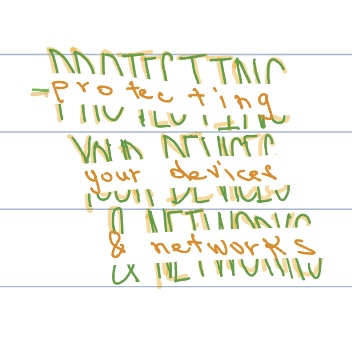 PROTECTING
-protecting
YOUR DEVICES
your devices
& NETWORKS
& networks